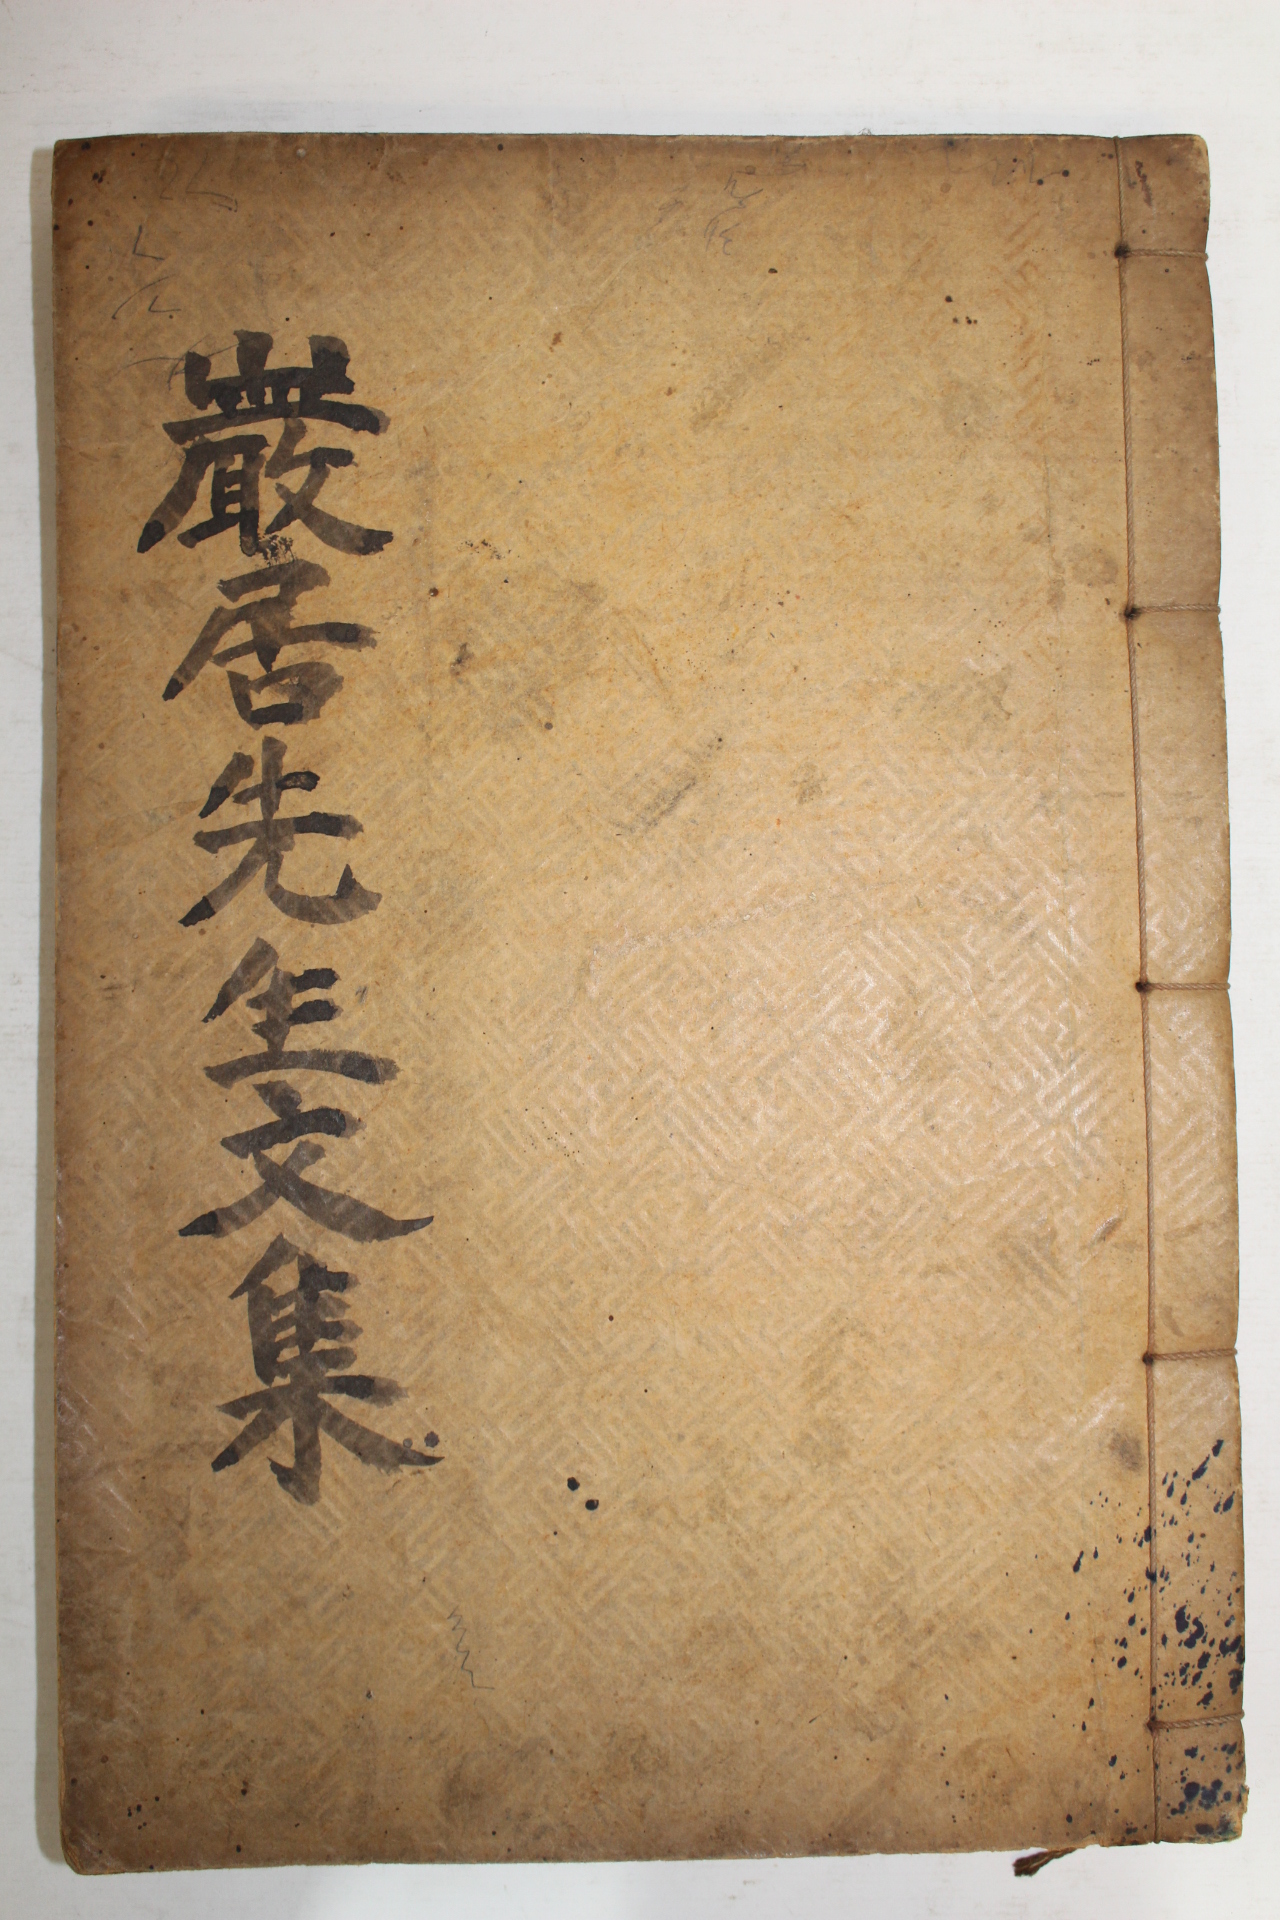 巖居先生文集